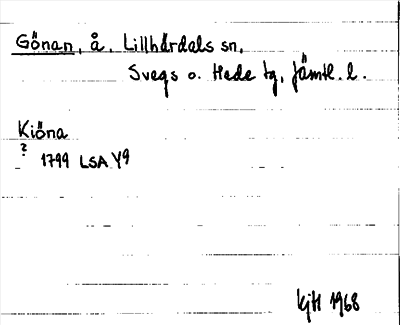 Gönan, å, Lillhärdals sn,
Svegs o. Hede tg, Jämtl. l.
Kiöna
? 1799 LSA Y9
kjH 1968